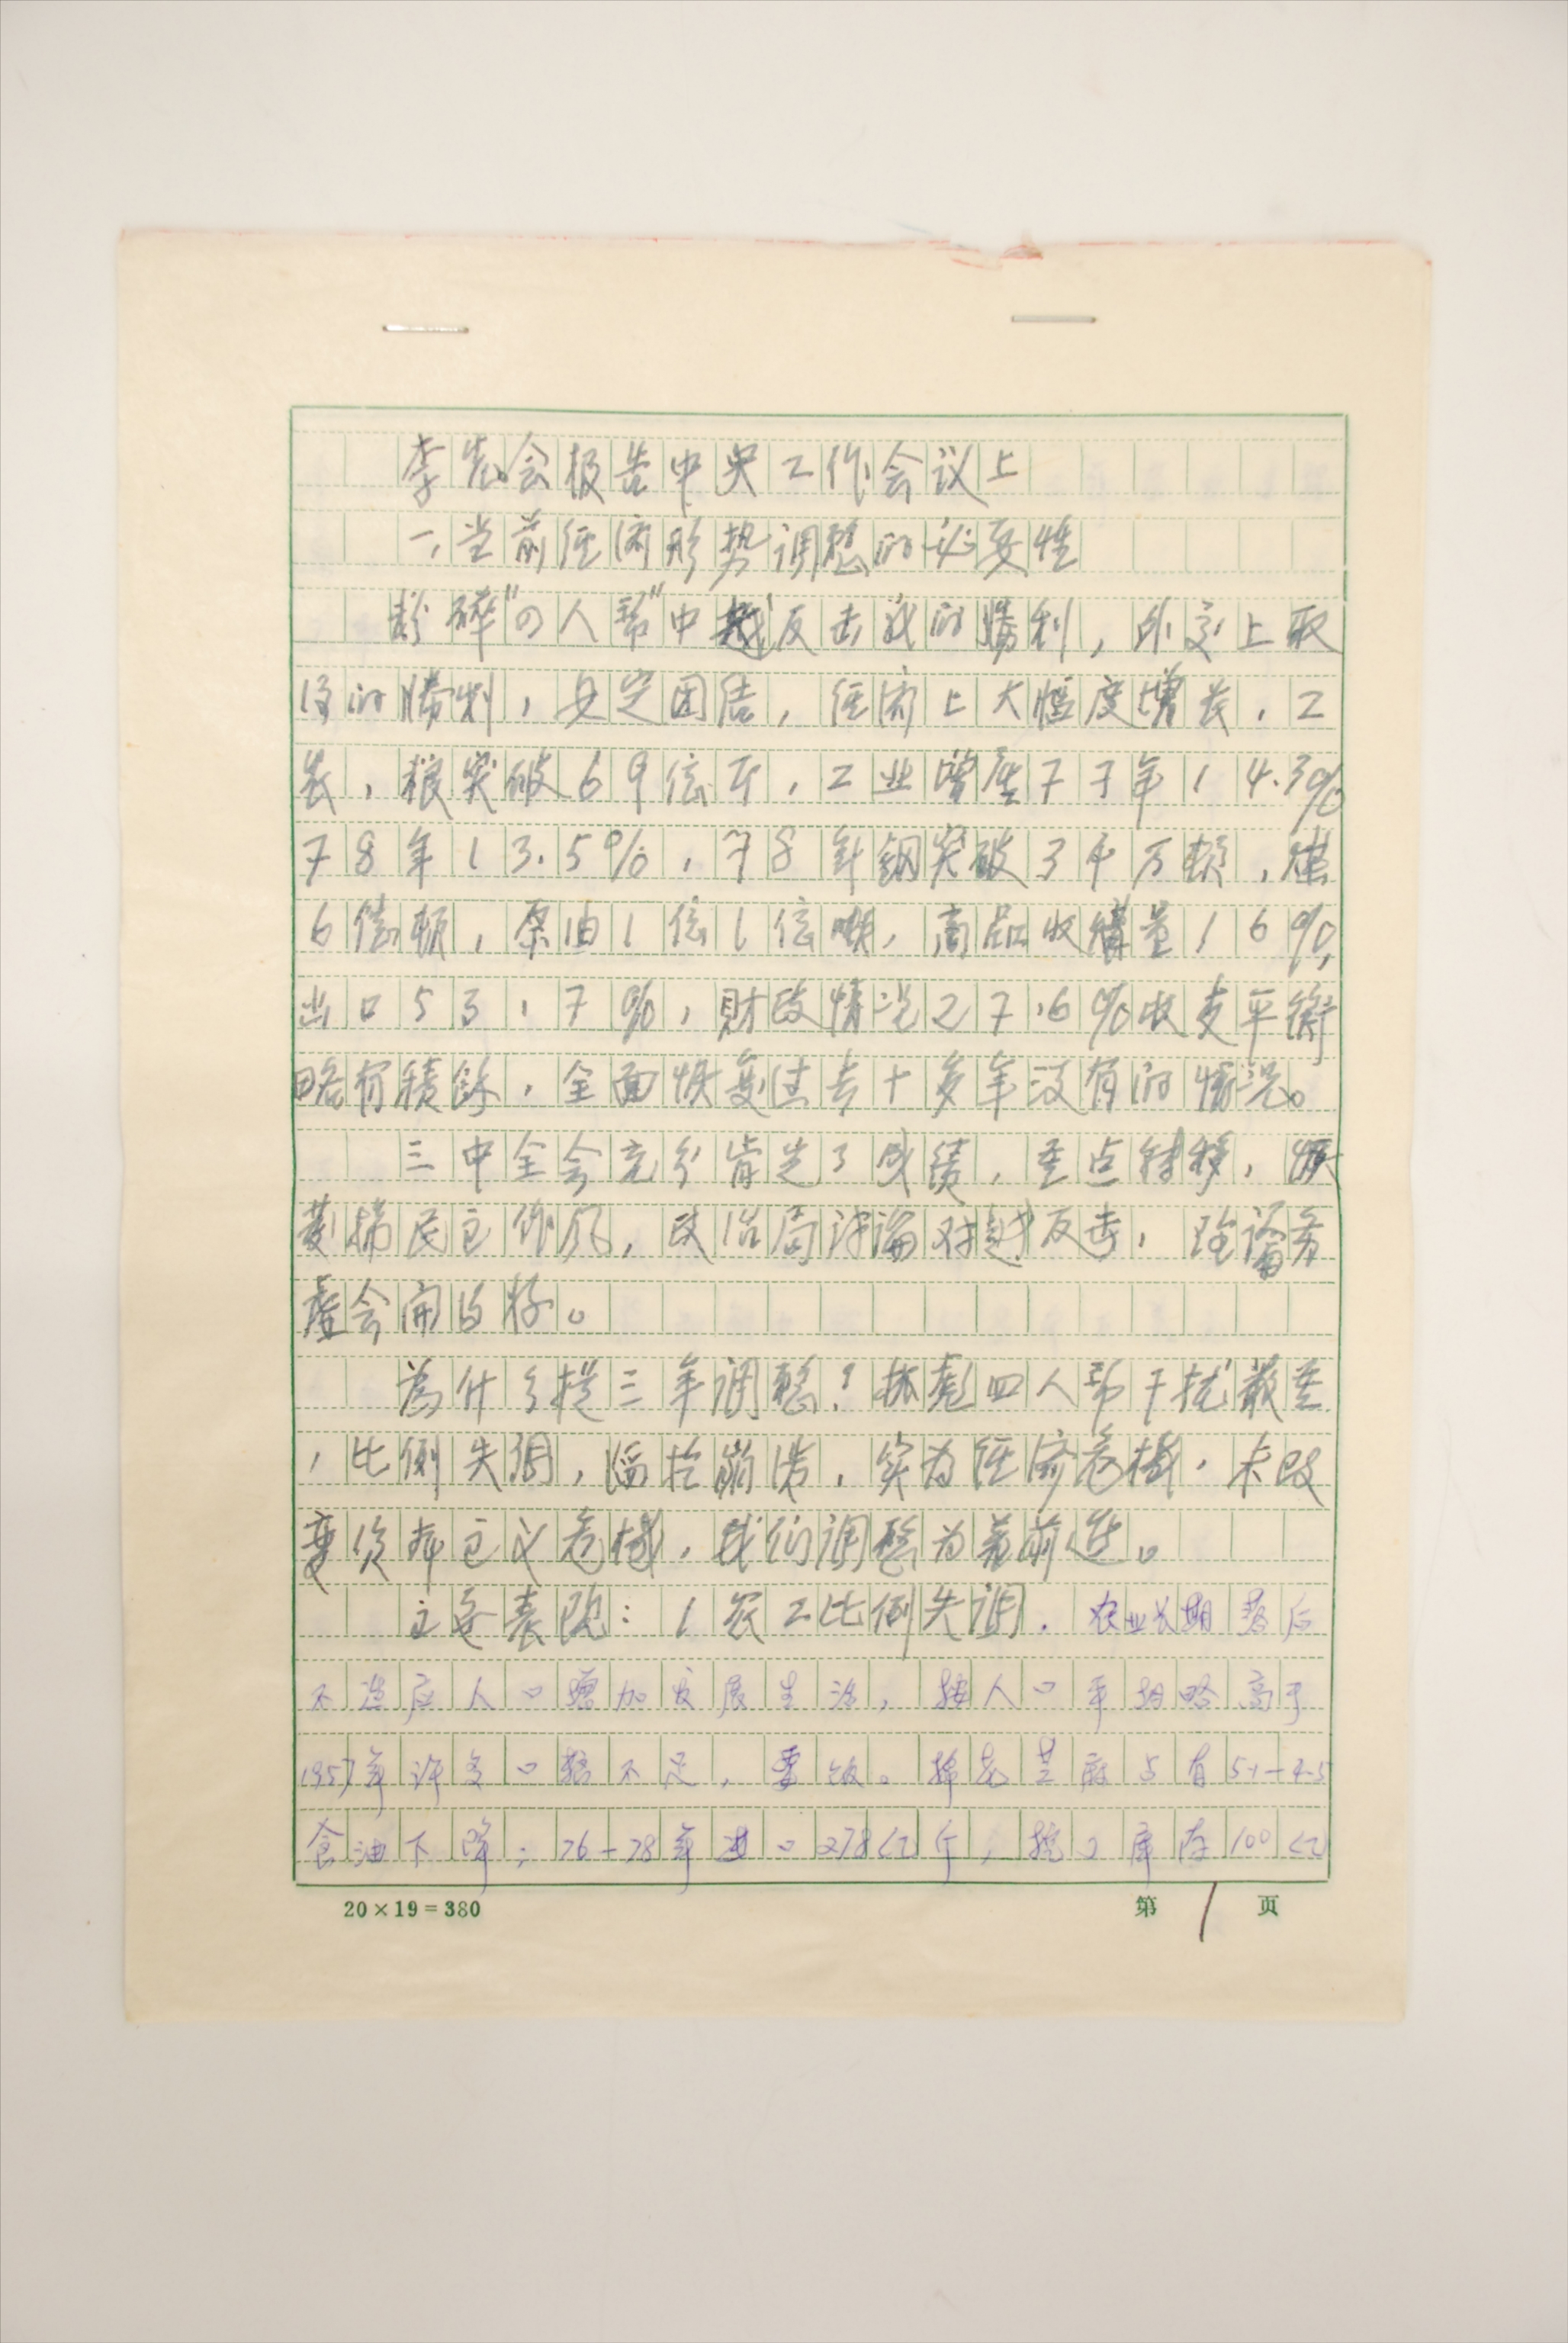 李先念报告中央工作会议上
一、当前经济形势调整的必要性
粉碎"四人帮"中越反击战的勝利，外交上取
得的勝利，安定团结，经济上大幅度增长，工
农，粮突破69億斤，工业增产77年14.3%
78年13.5%，78年钢突破3千万顿，煤
6億顿，原油1億1億噸，商品收購量16%，
出口53.7%，財政情况27.6%收支平衡
略有積餘，全面恢复过去十多年没有的情况。
三中全会充分肯定了成绩，重点转移，恢
复揚民主作风，政治局評論对越反击，理論务
虚会開的好。
為什么提三年调整？林彪四人帮干扰嚴重
，比例失调，临於崩溃，实为经济危机，未改
变资本主义危机，我们调整为着前进。
主要表现：1农工比例失调．农业长期落后
不适应人口增加发展生活，按人口平均略高于
1957年许多口粮不足，要饭。棉花 占有5.1—4.5
食油下降；76—78年进口278亿斤，挖了库存100亿
20×19=380
第1页